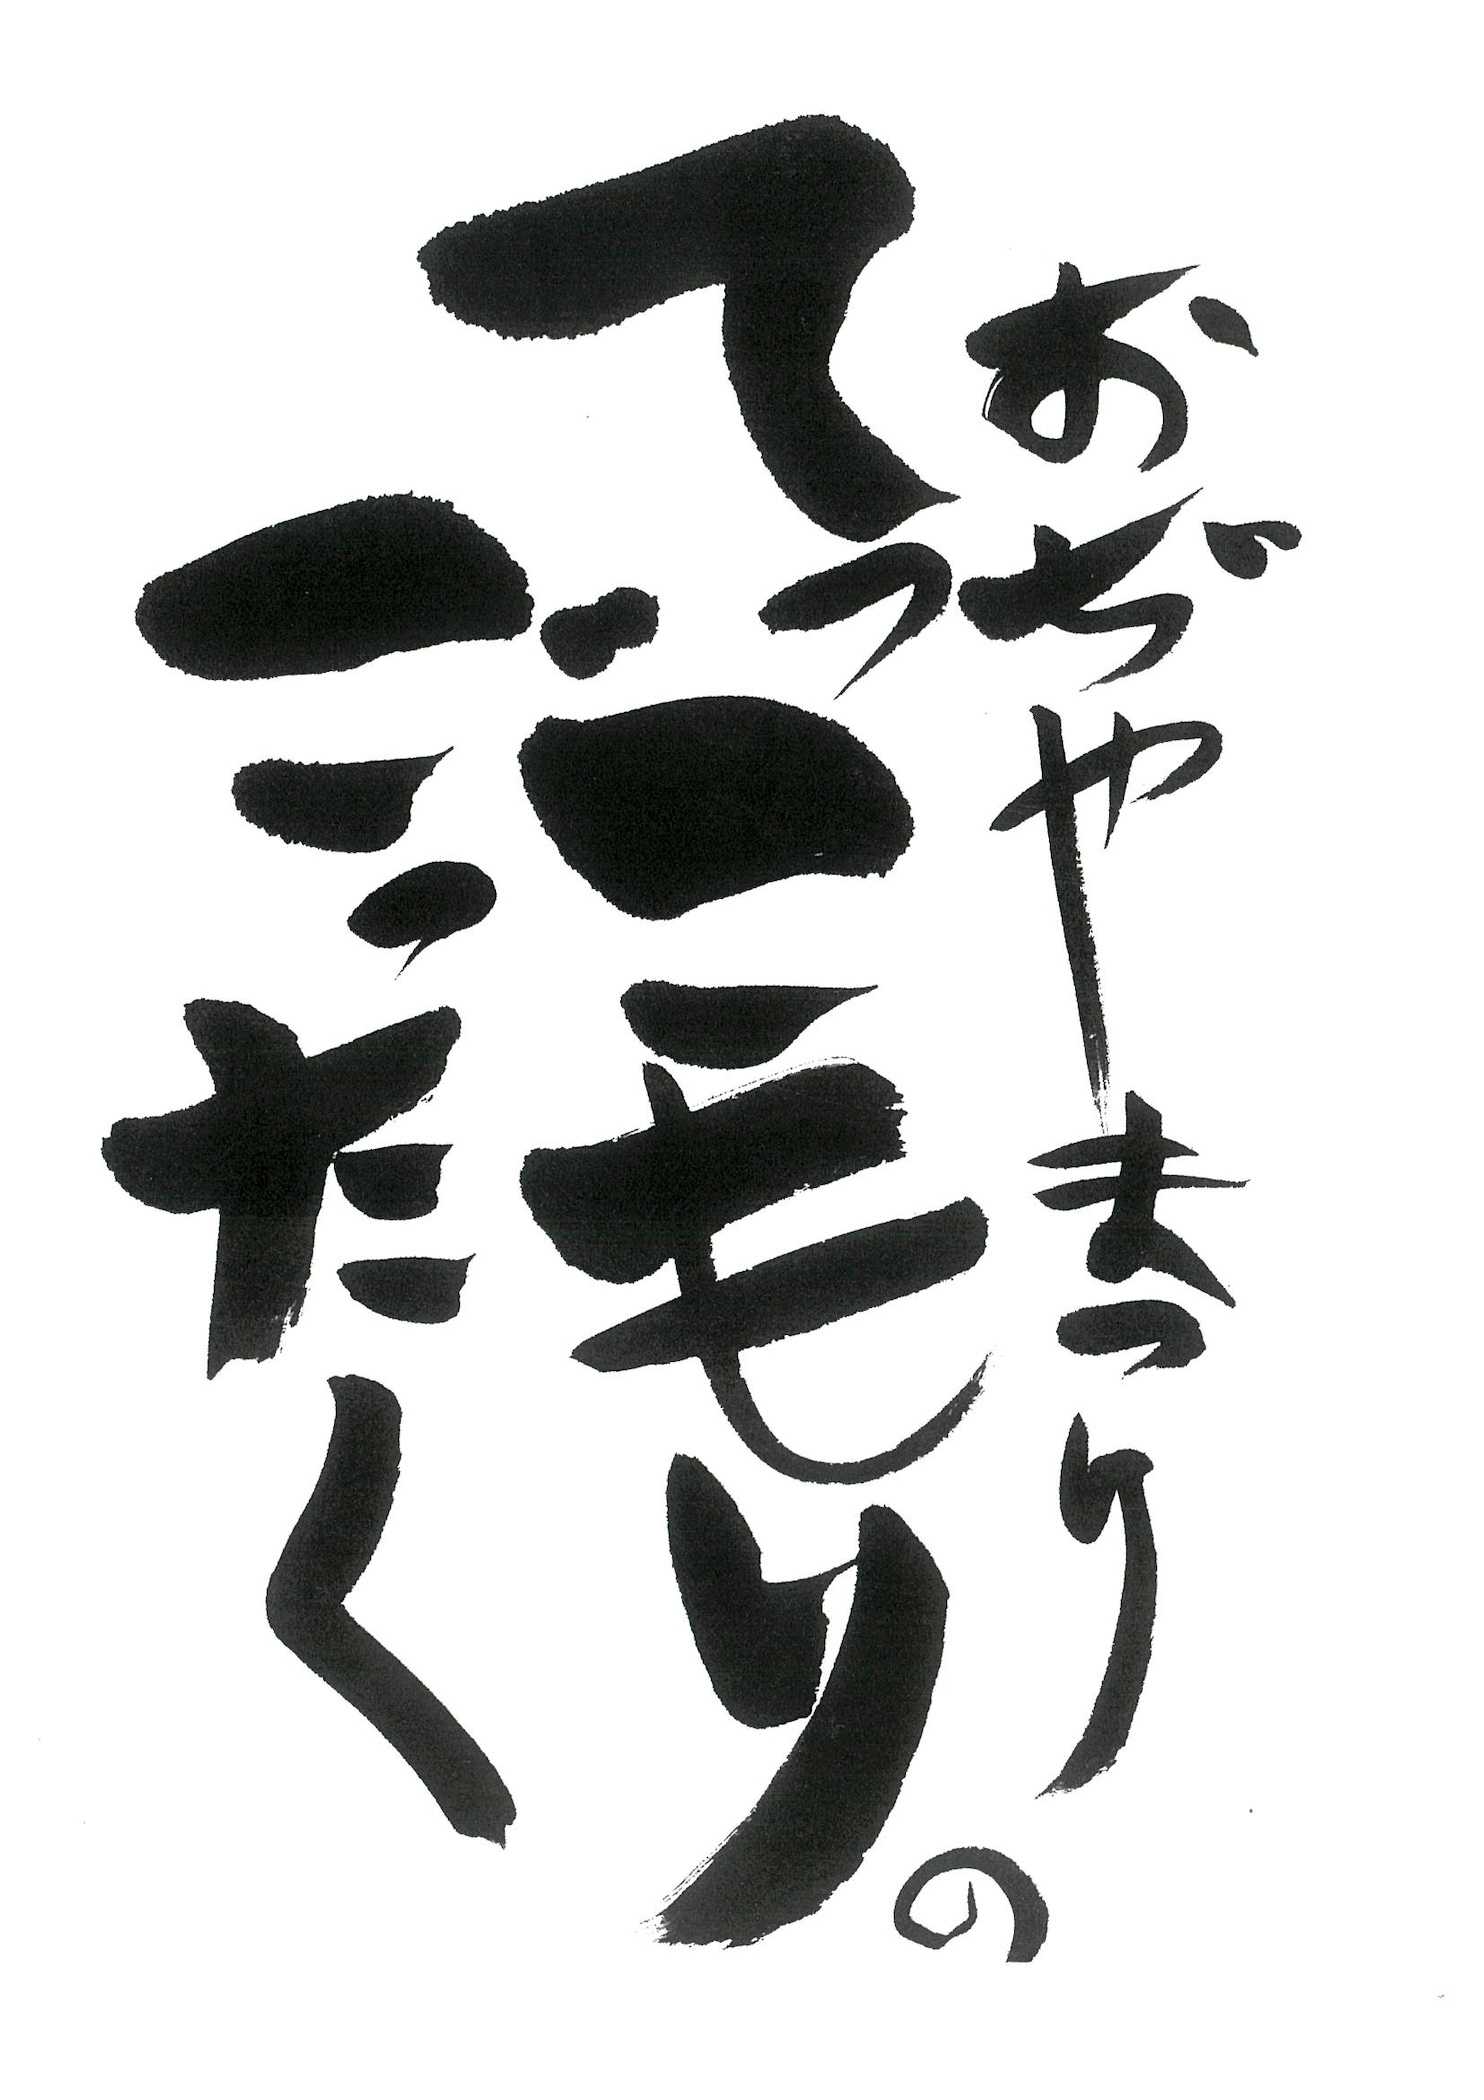 おぢやまつりの
てっこもり
ごったく